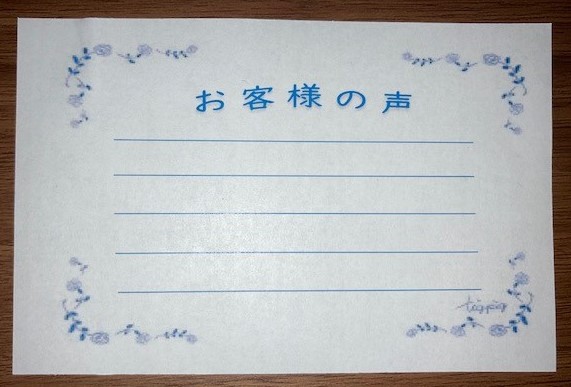 お客様の声